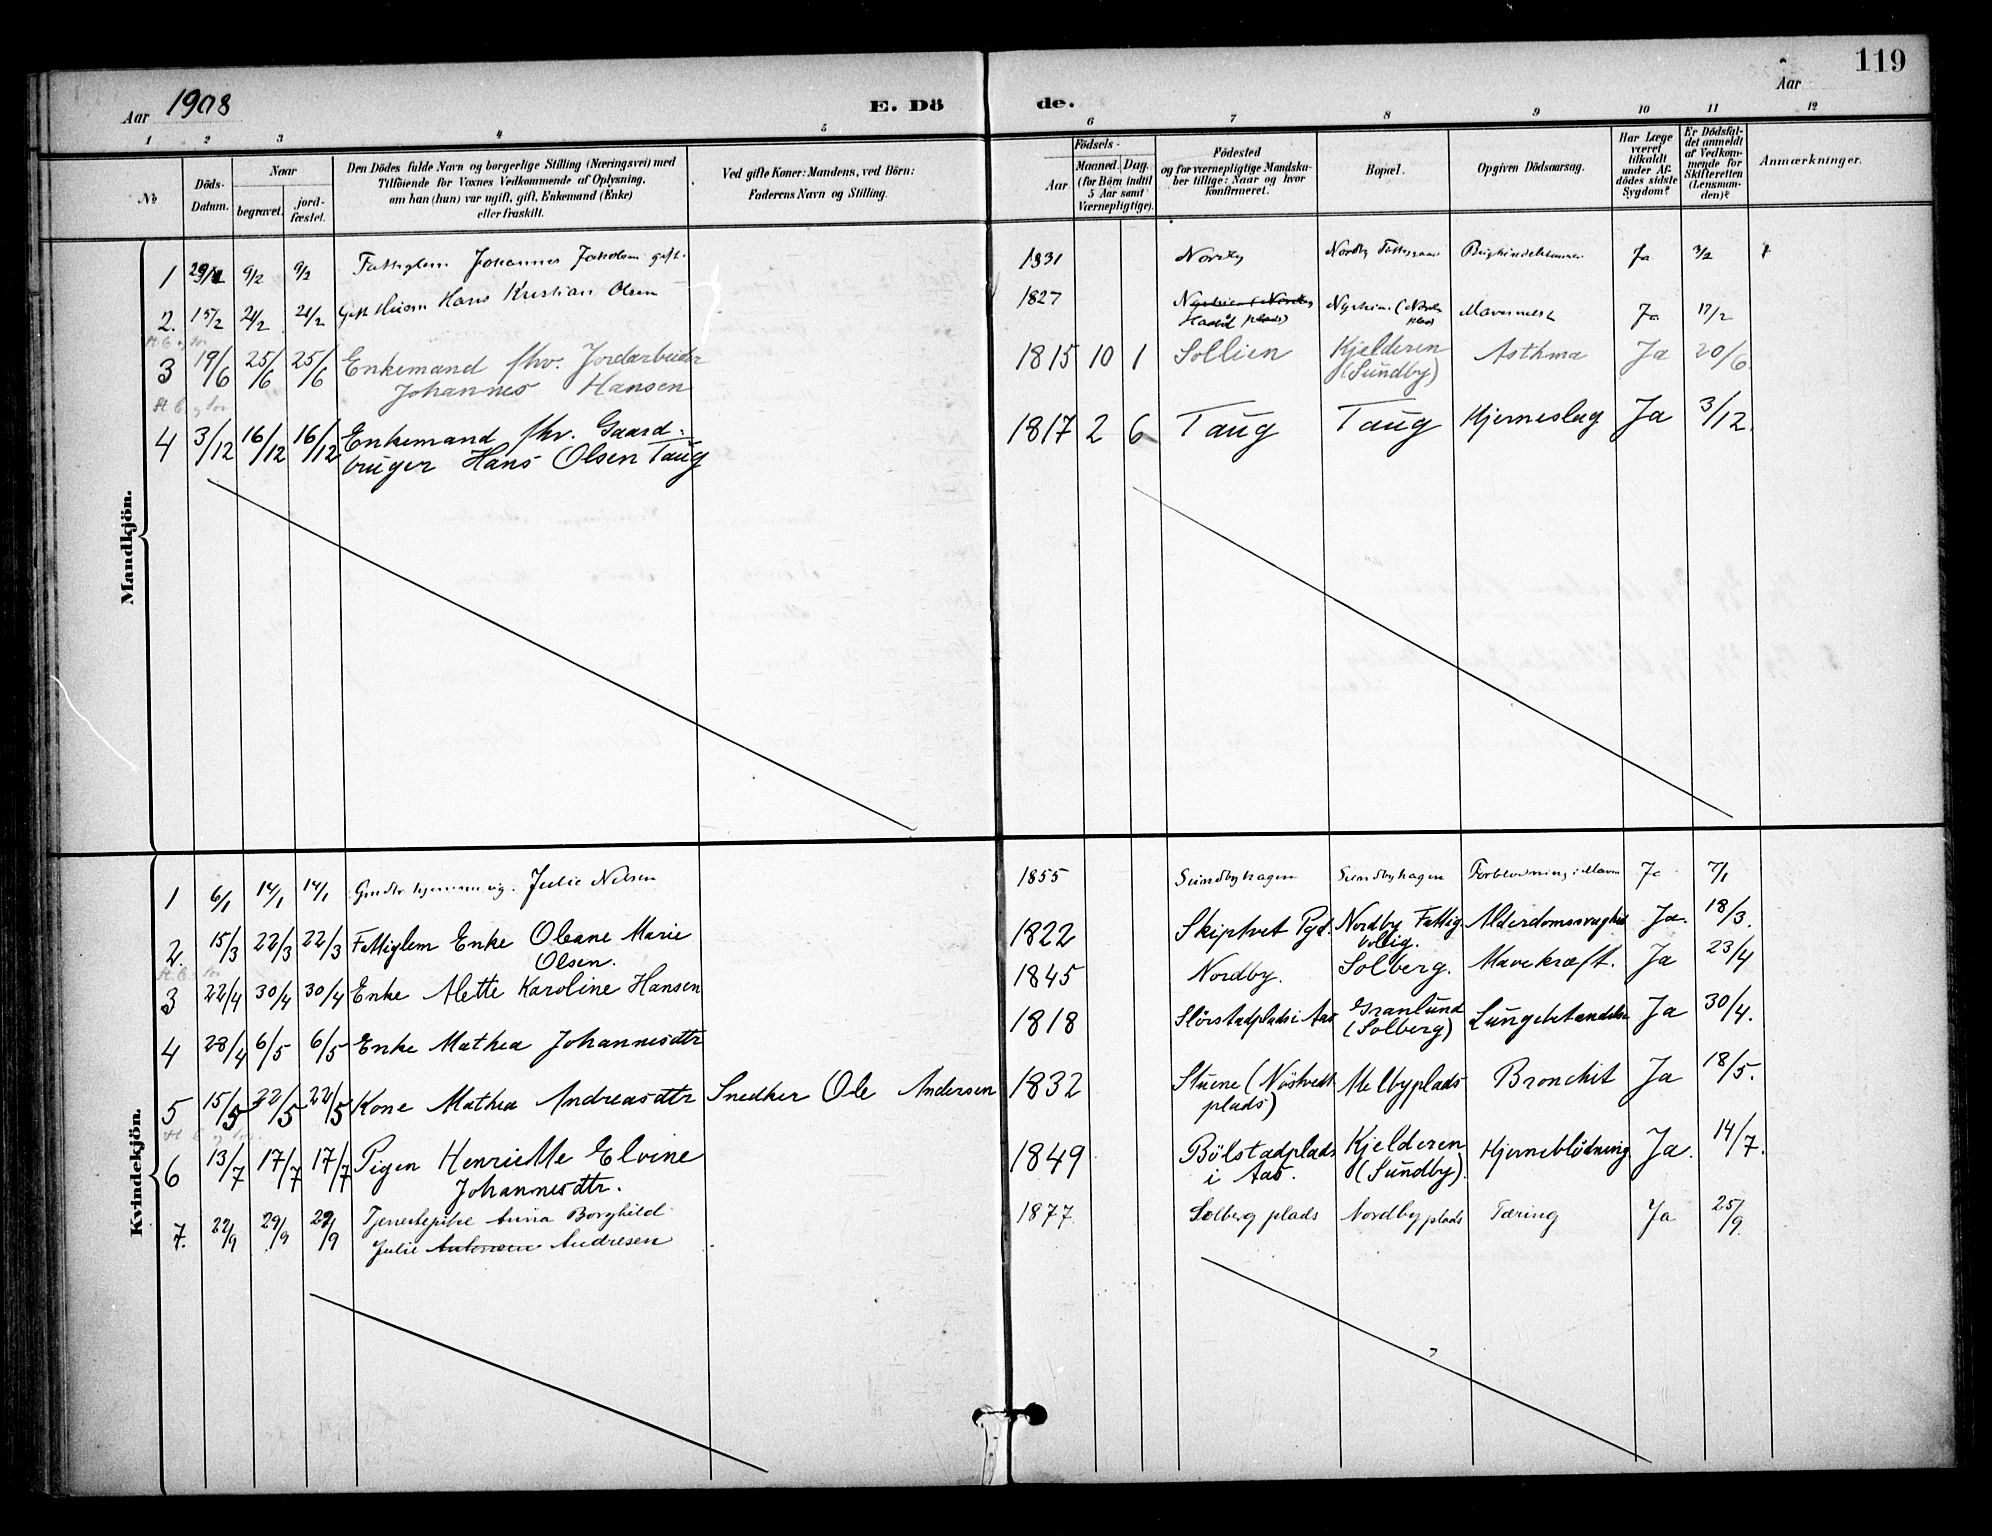 119
Aar 1908
E. Dö
de.
Aar
1 2 3 4 5 6 7 8 9 10 11 12
No
Döds-
Datum.
Naar
begravet.
jord-
fæstet.
Den Dödes fulde Navn og borgerlige Stilling (Næringsvei) med
Tilföiende for Voxnes Vedkommende af Oplysning,
om han (hun) var ugift, gift, Enkemand (Enke)
eller fraskilt.
Ved gifte Koner: Mandens, ved Börn:
Faderens Navn og Stilling.
Födsels-
Aar
Maaned.
Dag.
(for Börn indtil
5 Aar samt
Værnepligtige).
Födested
og for værnepligtige Mandska-
ber tillige: Naar og hvor
konfirmeret.
Bopæl.
Opgiven Dödsaarsag.
Har Læge
været
tilkaldt
under Af-
dödes sidste
Sygdom?
Er Dödsfal-
det anmeldt
af Vedkom-
mende for
Skifteretten
(Lensman-
den)?
Anmærkninger.
Mandkjön.
1 9/2 9/2 Fattiglem Johannes Jakobsen gift. 1831 Nordby Nordby Ja 3/2
2. 15/2 21/2 21/2 Gift Hans Kristian Olsen 1827 Ja 17/2
3 19/6 25/6 25/6 Enkemand fhv. Jordarbeider 1815 10 1 Sollien Kjelderen Asthma Ja 20/6
Johannes Hansen (Sundby)
4 3/12 16/12 16/12 Enkemand fhv. Gaard- 1817 2 6 Taug Taug Hjerneslag Ja 3/12.
bruger Hans Olsen Taug
Kvindekjön.
1 6/1 14/1 14/1 Julie Nilsen 1855 Sundbyhagen Sundbyhagen Ja 7/1
2. 15/3 22/3 22/3 Fattiglem Enke Oleane Marie 1822 Skiptvet Pgd. Nordby Fattig- Alderdomssvaghed Ja. 18/3.
Olsen. bolig.
3 22/4 30/4 30/4 Enke Alette Karoline Hansen 1845 Nordby. Solberg. Mavekræft. Ja 23/4
4 28/4 6/5 6/5 Enke Mathea Johannesdtr 1818 Slörstadplads i Aas Granlund Ja 30/4.
(Solberg)
5 15/5 22/5 22/5 Kone Mathea Andreasdtr Snedker Ole Andersen 1832 Stuene (Nöstvedt- Melbyplads Bronchit Ja 18/5.
plads)
6 13/7 17/7 17/7 Pigen Henriette Elvine 1849 Bölstadplads Kjelderen Hjerneblödning Ja. 14/7.
Johannesdtr. i Aas. (Sundby).
7. 22/9 29/9 29/9 Tjenestepike Anna Borghild 1877 Solberg plads Nordby plads Tæring Ja 25/9.
Julie Antonsen Andresen